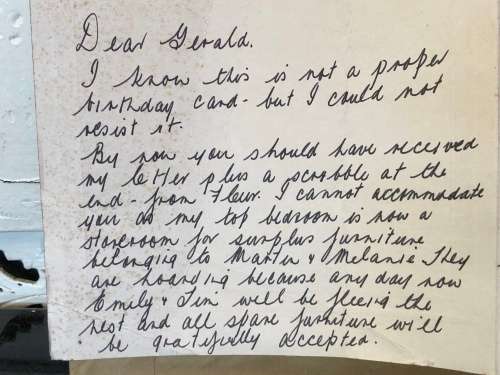 Dear Gerald.
I know this is not a proper
birthday card - but I could not
resist it.
By now you should have received
my letter plus a scrabble at the
end - from Fleur. I cannot accommodate
you as my top bedroom is now a
storeroom for surplus furniture
belonging to Martin & Melanie. They
are hoarding because any day now
Emily & Tim will be fleeing the
nest and all spare furniture will
be gratefully accepted.